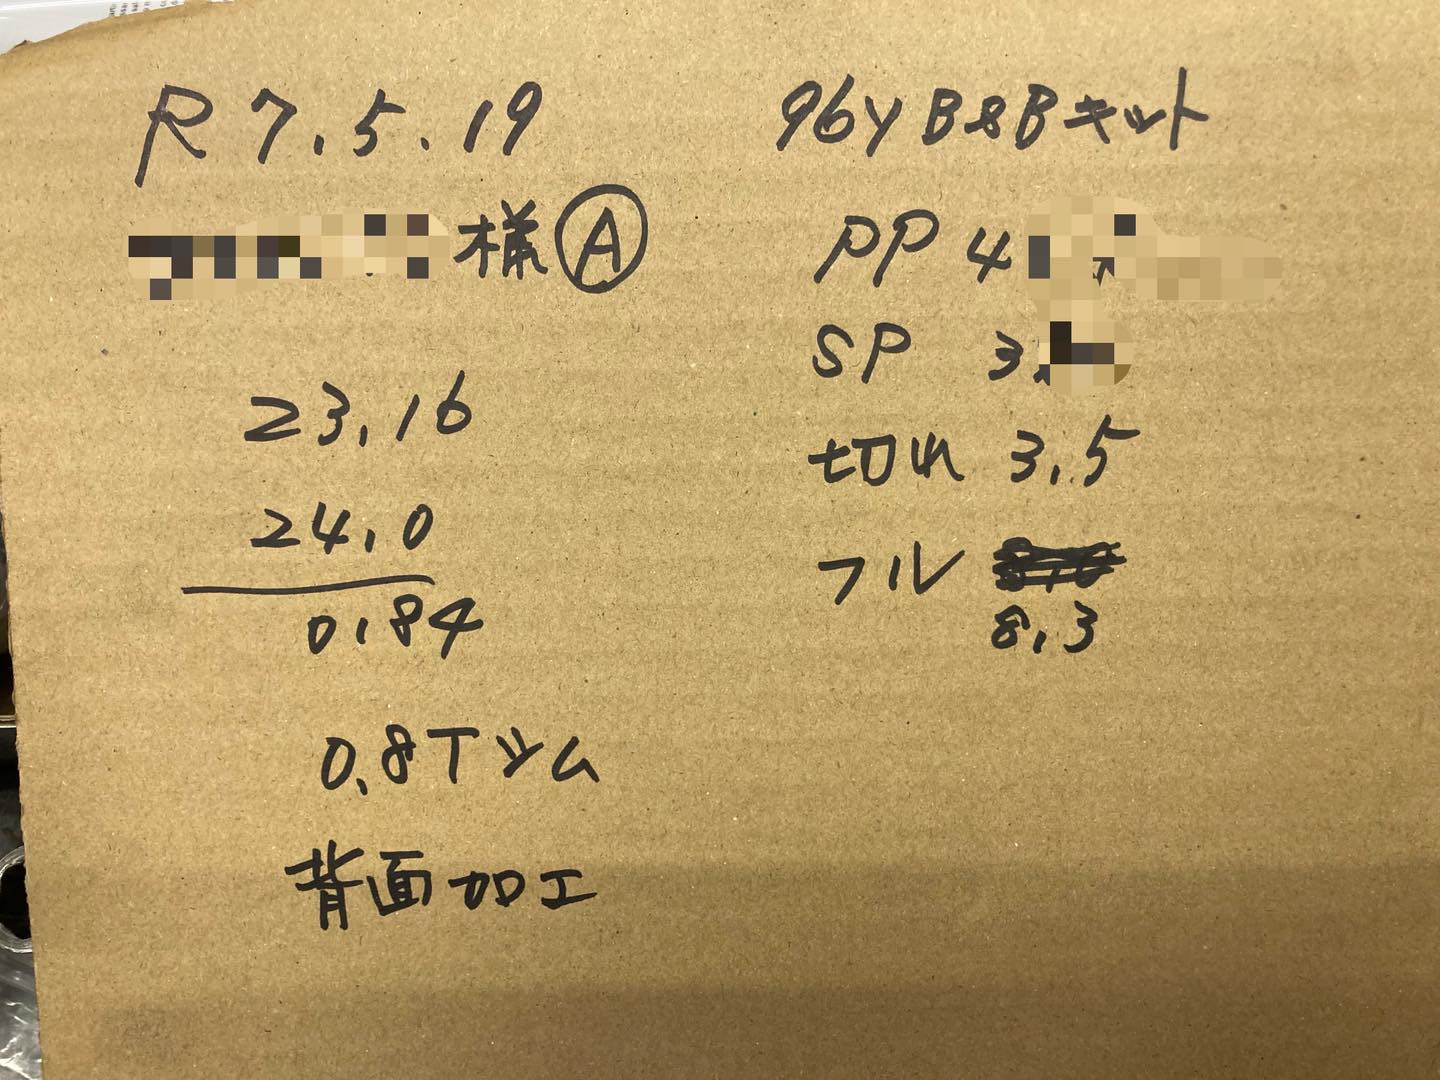 R7.5.19
様Ⓐ
23.16
24.0
0.84
0.8Tツム
背面加工
96y B&Bキット
PP 4
SP 3.
切れ 3.5
フル
8.3